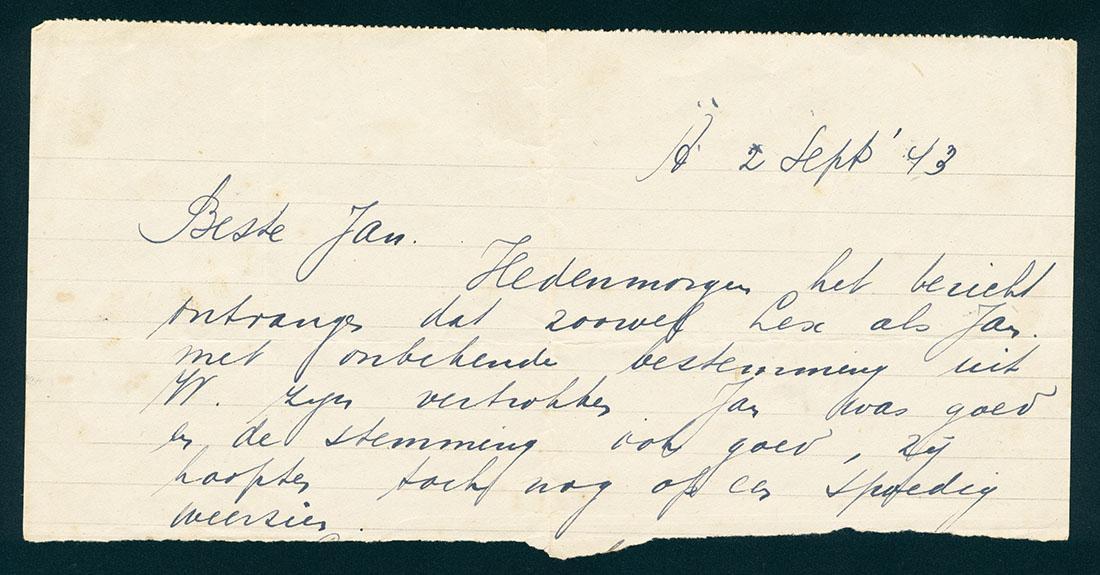 A. 2 Sept '43
Beste Jan.
Hedenmorgen het bericht
ontvangen dat zoowel Lex als Jan.
met onbekende bestemming uit
W. zyn vertrokken. Jan was goed
en de stemming ook goed, zij
hoopten toch nog op een spoedig
weerzien.